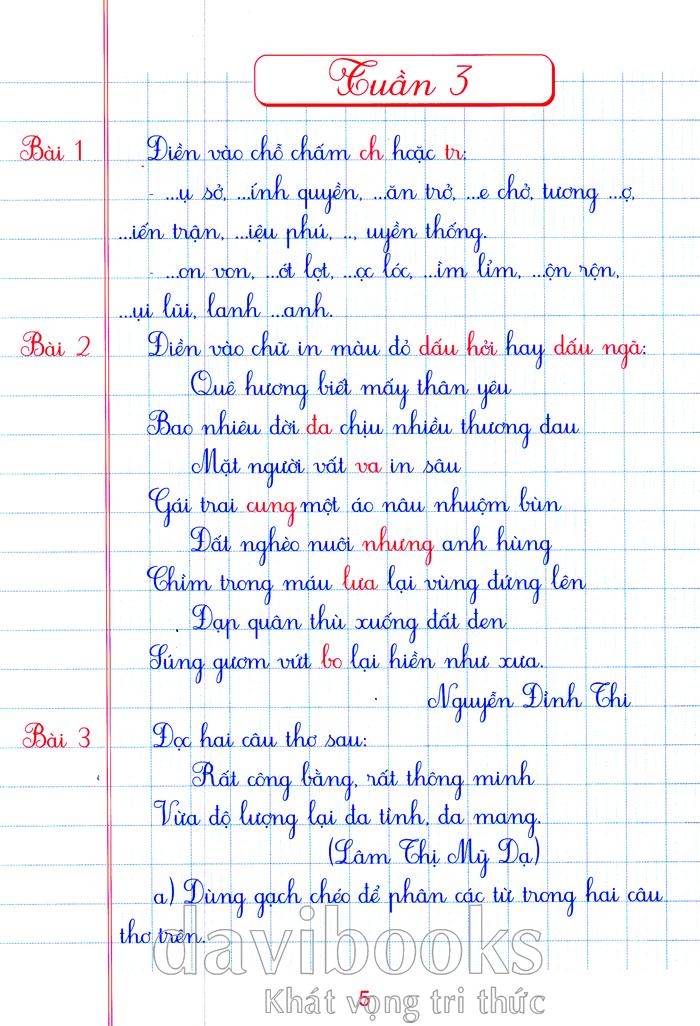 Tuần 3
Bài 1 Điền vào chỗ chấm ch hoặc tr:
- ...ụ sở, ...ính quyền, ...ăn trở, ...e chở, tương ...ợ,
...iến trận, ...iệu phú, .., uyền thống.
- ...on von, ...ót lọt, ...ọc lóc, ...ìm lỉm, ...ộn rộn,
...ụi lũi, lanh ...anh.
Bài 2 Điền vào chữ in màu đỏ dấu hỏi hay dấu ngã:
Quê hương biết mấy thân yêu
Bao nhiêu đời đa chịu nhiều thương đau
Mặt người vất va in sâu
Gái trai cung một áo nâu nhuộm bùn
Đất nghèo nuôi nhưng anh hùng
Chìm trong máu lưa lại vùng đứng lên
Đạp quân thù xuống đất đen
Súng gươm vứt bo lại hiền như xưa.
Nguyễn Đình Thi
Bài 3 Đọc hai câu thơ sau:
Rất công bằng, rất thông minh
Vừa độ lượng lại đa tình, đa mang.
(Lâm Thị Mỹ Dạ)
a) Dùng gạch chéo để phân các từ trong hai câu
thơ trên.
davibooks
Khát vọng tri thức
5